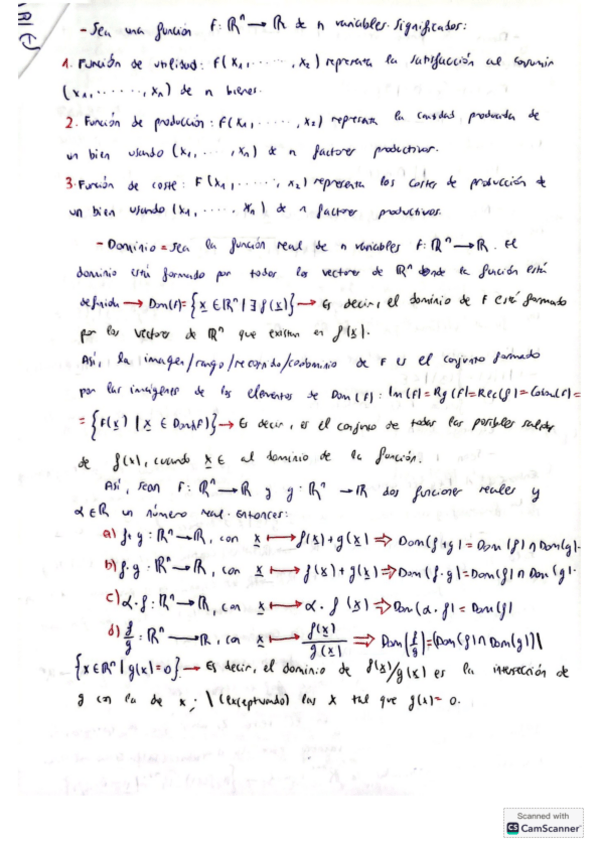 - Sea una función F: ℝⁿ → ℝ de n variables. Significados:
1. Función de utilidad: F(x₁, ....., x₂) representa la satisfacción al consumir
(x₁, ....., xₙ) de n bienes.
2. Función de producción: F(x₁, ....., x₂) representa la cantidad producida de
un bien usando (x₁, ..., xₙ) de n factores productivos.
3. Función de coste: F(x₁, ....., x₂) representa los costes de producción de
un bien usando (x₁, ...., xₙ) de n factores productivos.
- Dominio = Sea la función real de n variables F: ℝⁿ → ℝ. El
dominio está formado por todos los vectores de ℝⁿ donde la función está
definida → Dom(f) = {x ∈ ℝⁿ | ∃ f(x)} → Es decir, el dominio de F está formado
por los vectores de ℝⁿ que existan en f(x).
Así, la imagen/rango/recorrido/codominio de F es el conjunto formado
por las imágenes de los elementos de Dom(f): Im(F) = Rg(F) = Rec(f) = Codom(F) =
= {F(x) | x ∈ Dom(F)} → Es decir, es el conjunto de todas las posibles salidas
de f(x), cuando x ∈ al dominio de la función.
Así, sean F: ℝⁿ → ℝ y g: ℝⁿ → ℝ dos funciones reales y
α ∈ ℝ un número real. Entonces:
a) f+g: ℝⁿ → ℝ, con x ↦ f(x)+g(x) ⇒ Dom(f+g) = Dom(f) ∩ Dom(g).
b) f·g: ℝⁿ → ℝ, con x ↦ f(x)·g(x) ⇒ Dom(f·g) = Dom(f) ∩ Dom(g).
c) α·f: ℝⁿ → ℝ, con x ↦ α·f(x) ⇒ Dom(α·f) = Dom(f)
d) f/g: ℝⁿ → ℝ, con x ↦ f(x)/g(x) ⇒ Dom(f/g) = (Dom(f) ∩ Dom(g)) \
{x ∈ ℝⁿ | g(x) = 0} → Es decir, el dominio de f(x)/g(x) es la intersección de
g con la de x; \ (exceptuando) los x tal que g(x) = 0.
Scanned with
CS CamScanner